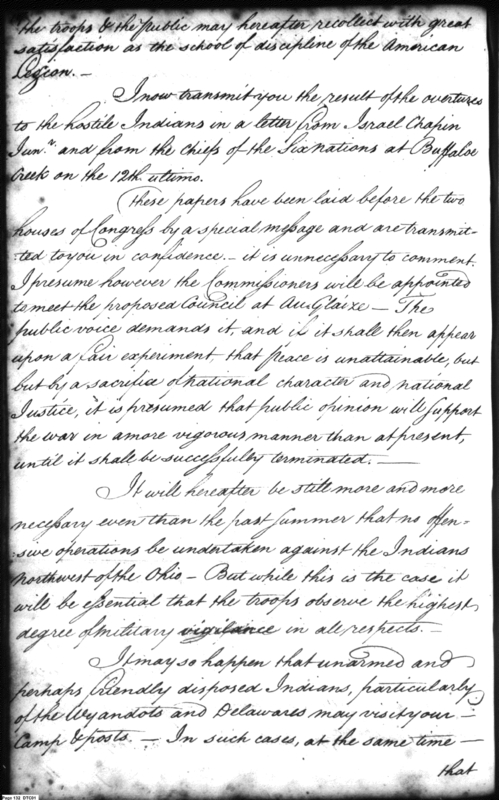 the troops & the public may hereafter recollect with great
satisfaction as the school of discipline of the American
Legion. —
I now transmit you the result of the overtures
to the hostile Indians in a letter from Israel Chapin
Junr. and from the Chiefs of the Six Nations at Buffaloe
Creek on the 12th ultimo.
These papers have been laid before the two
houses of Congress by a special message and are transmit-
-ted to you in confidence — it is unnecessary to comment.
I presume however the Commissioners will be appointed
to meet the proposed Council at Au Glaize — The
public voice demands it, and if it shall then appear
upon a fair experiment that peace is unattainable, but
but by a sacrifice of national character and national
Justice, it is presumed that public opinion will support
the war in a more vigorous manner than at present,
until it shall be successfully terminated. —
It will hereafter be still more and more
necessary even than the past summer that no offen-
-sive operations be undertaken against the Indians
northwest of the Ohio — But while this is the case it
will be essential that the troops observe the highest
degree of military vigilance in all respects. —
It may so happen that unarmed and
perhaps friendly disposed Indians, particularly
of the Wyandots and Delawares may visit your —
Camp & posts. — In such cases, at the same time —
that
Page 132 DTC01